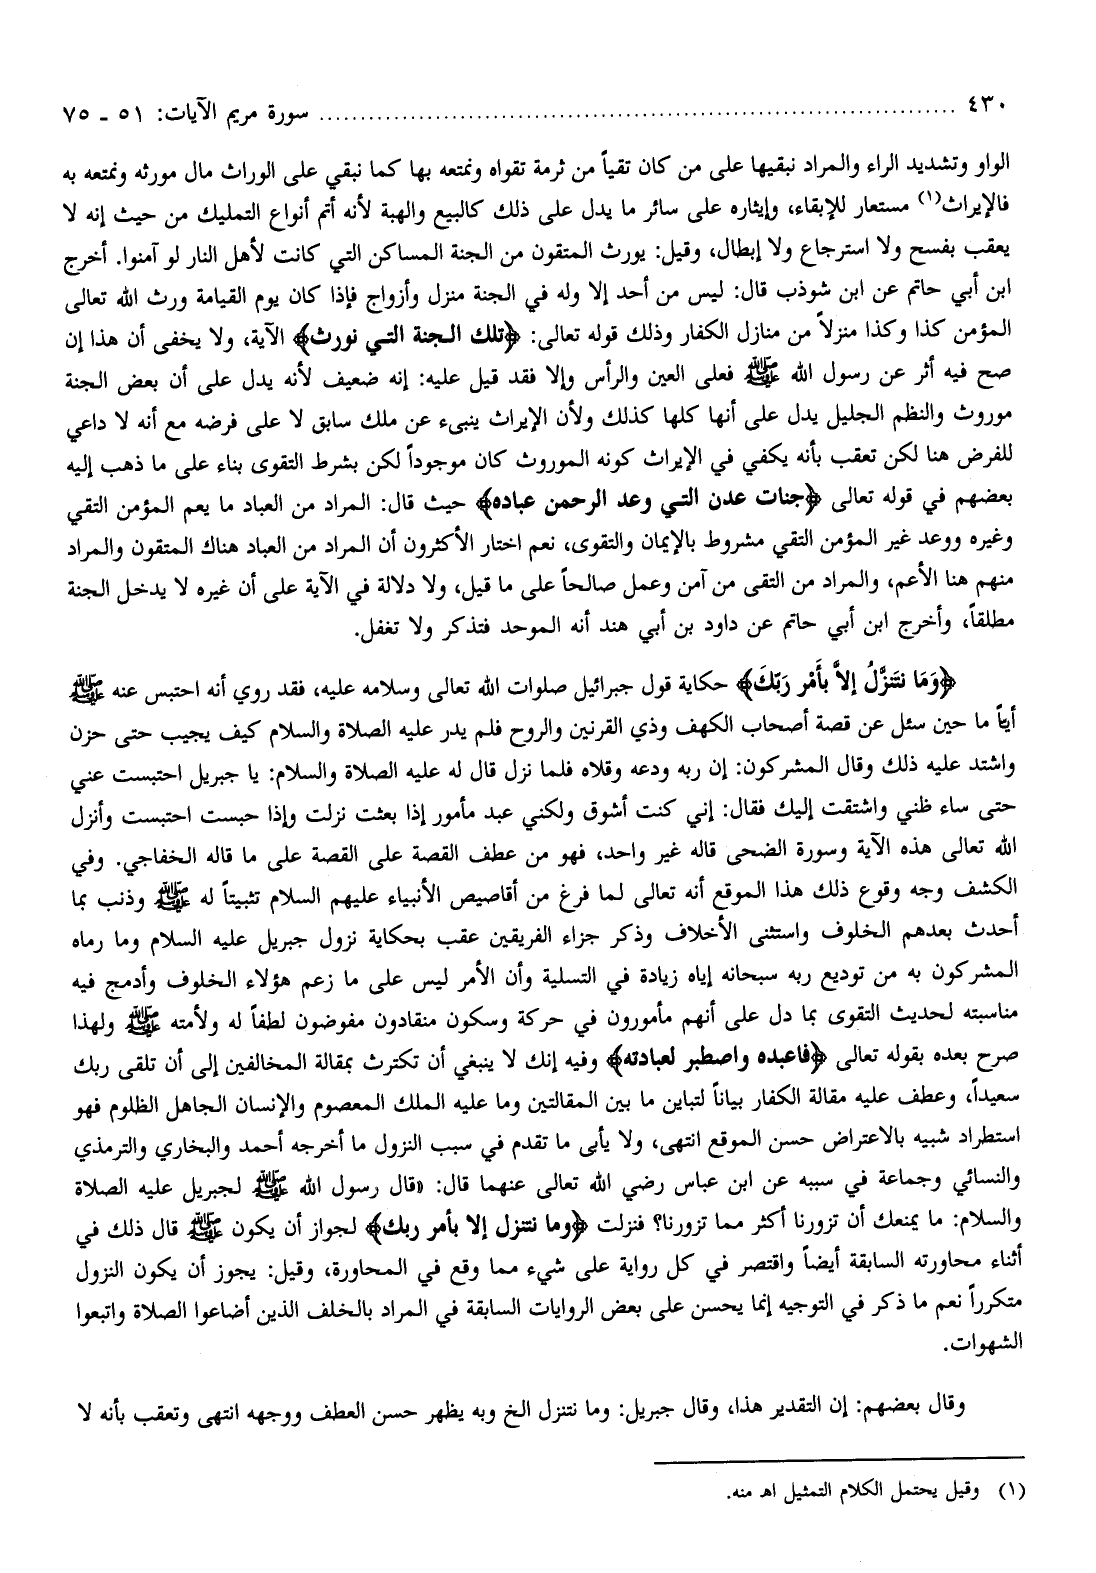 ٤٣٠ ........................................ سورة مريم الآيات: ٥١ - ٧٥
الواو وتشديد الراء والمراد نبقيها على من كان تقياً من ثرمة تقواه ونمتعه بها كما نبقي على الوراث مال مورثه ونمتعه به
فالإيراث(١) مستعار للإبقاء، وإيثاره على سائر ما يدل على ذلك كالبيع والهبة لأنه أتم أنواع التمليك من حيث إنه لا
يعقب بفسح ولا استرجاع ولا إبطال، وقيل: يورث المتقون من الجنة المساكن التي كانت لأهل النار لو آمنوا. أخرج
ابن أبي حاتم عن ابن شوذب قال: ليس من أحد إلا وله في الجنة منزل وأزواج فإذا كان يوم القيامة ورث الله تعالى
المؤمن كذا وكذا منزلاً من منازل الكفار وذلك قوله تعالى: ﴿تلك الجنة التي نورث﴾ الآية، ولا يخفى أن هذا إن
صح فيه أثر عن رسول الله ﷺ فعلى العين والرأس وإلا فقد قيل عليه: إنه ضعيف لأنه يدل على أن بعض الجنة
موروث والنظم الجليل يدل على أنها كلها كذلك ولأن الإيراث ينبىء عن ملك سابق لا على فرضه مع أنه لا داعي
للفرض هنا لكن تعقب بأنه يكفي في الإيراث كونه الموروث كان موجوداً لكن بشرط التقوى بناء على ما ذهب إليه
بعضهم في قوله تعالى ﴿جنات عدن التي وعد الرحمن عباده﴾ حيث قال: المراد من العباد ما يعم المؤمن التقي
وغيره ووعد غير المؤمن التقي مشروط بالإيمان والتقوى، نعم اختار الأكثرون أن المراد من العباد هناك المتقون والمراد
منهم هنا الأعم، والمراد من التقى من آمن وعمل صالحاً على ما قيل، ولا دلالة في الآية على أن غيره لا يدخل الجنة
مطلقاً، وأخرج ابن أبي حاتم عن داود بن أبي هند أنه الموحد فتذكر ولا تغفل.
﴿وَمَا نتَنَزَّلُ إلاَّ بأَمْر رَبّكَ﴾ حكاية قول جبرائيل صلوات الله تعالى وسلامه عليه، فقد روي أنه احتبس عنه ﷺ
أيّاً ما حين سئل عن قصة أصحاب الكهف وذي القرنين والروح فلم يدر عليه الصلاة والسلام كيف يجيب حتى حزن
واشتد عليه ذلك وقال المشركون: إن ربه ودعه وقلاه فلما نزل قال له عليه الصلاة والسلام: يا جبريل احتبست عني
حتى ساء ظني واشتقت إليك فقال: إني كنت أشوق ولكني عبد مأمور إذا بعثت نزلت وإذا حبست احتبست وأنزل
الله تعالى هذه الآية وسورة الضحى قاله غير واحد، فهو من عطف القصة على القصة على ما قاله الخفاجي. وفي
الكشف وجه وقوع ذلك هذا الموقع أنه تعالى لما فرغ من أقاصيص الأنبياء عليهم السلام تثبيتاً له ﷺ وذنب بما
أحدث بعدهم الخلوف واستثنى الأخلاف وذكر جزاء الفريقين عقب بحكاية نزول جبريل عليه السلام وما رماه
المشركون به من توديع ربه سبحانه إياه زيادة في التسلية وأن الأمر ليس على ما زعم هؤلاء الخلوف وأدمج فيه
مناسبته لحديث التقوى بما دل على أنهم مأمورون في حركة وسكون منقادون مفوضون لطفاً له ولأمته ﷺ ولهذا
صرح بعده بقوله تعالى ﴿فاعبده واصطبر لعبادته﴾ وفيه إنك لا ينبغي أن تكترث بمقالة المخالفين إلى أن تلقى ربك
سعيداً، وعطف عليه مقالة الكفار بياناً لتباين ما بين المقالتين وما عليه الملك المعصوم والإنسان الجاهل الظلوم فهو
استطراد شبيه بالاعتراض حسن الموقع انتهى، ولا يأبى ما تقدم في سبب النزول ما أخرجه أحمد والبخاري والترمذي
والنسائي وجماعة في سببه عن ابن عباس رضي الله تعالى عنهما قال: «قال رسول الله ﷺ لجبريل عليه الصلاة
والسلام: ما يمنعك أن تزورنا أكثر مما تزورنا؟ فنزلت ﴿وما نتنزل إلا بأمر ربك﴾ لجواز أن يكون ﷺ قال ذلك في
أثناء محاورته السابقة أيضاً واقتصر في كل رواية على شيء مما وقع في المحاورة، وقيل: يجوز أن يكون النزول
متكرراً نعم ما ذكر في التوجيه إنما يحسن على بعض الروايات السابقة في المراد بالخلف الذين أضاعوا الصلاة واتبعوا
الشهوات.
وقال بعضهم: إن التقدير هذا، وقال جبريل: وما نتنزل الخ وبه يظهر حسن العطف ووجهه انتهى وتعقب بأنه لا
(١) وقيل يحتمل الكلام التمثيل اهـ منه.